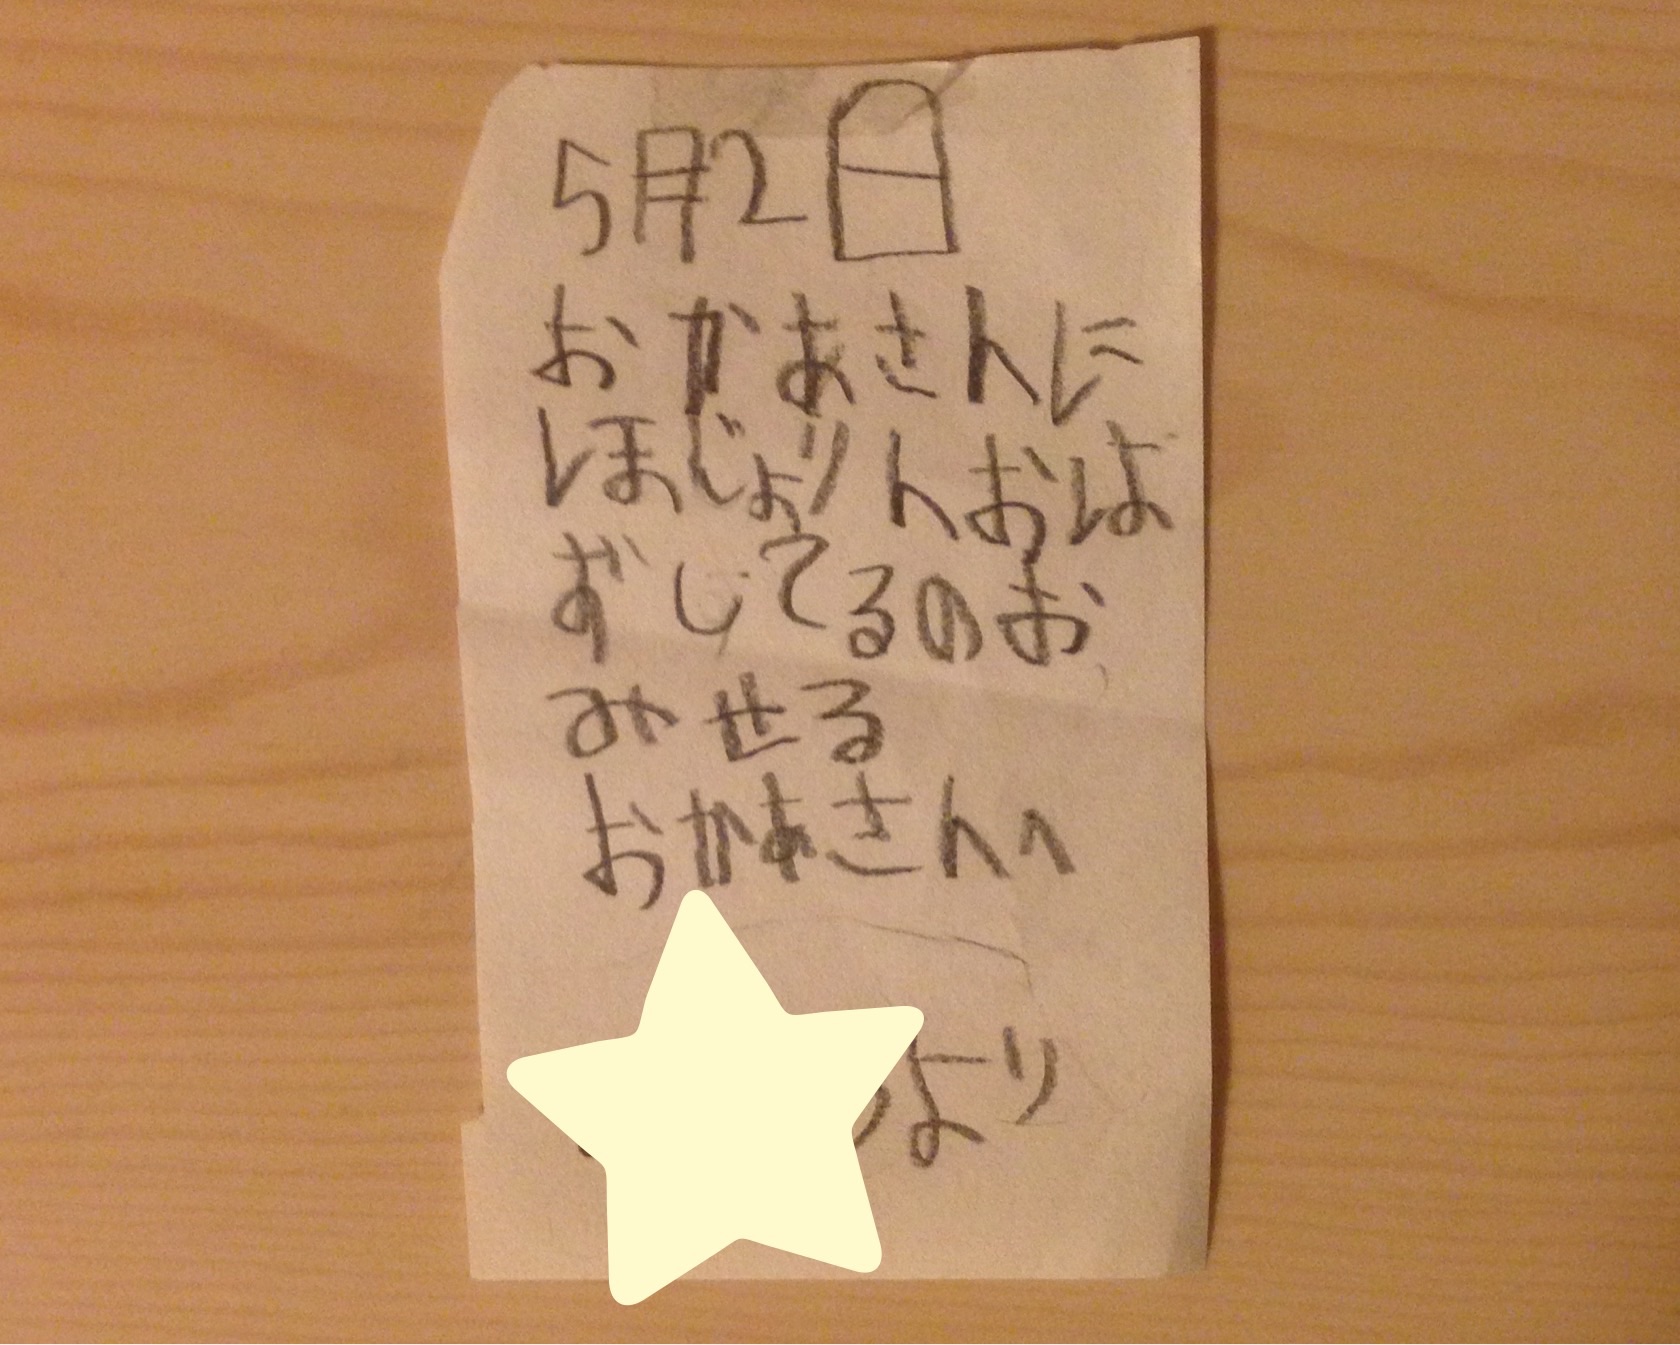 5月2日
おかあさんに
ほじょりんおは
ずしてるのお
みせる
おかあさんへ
より